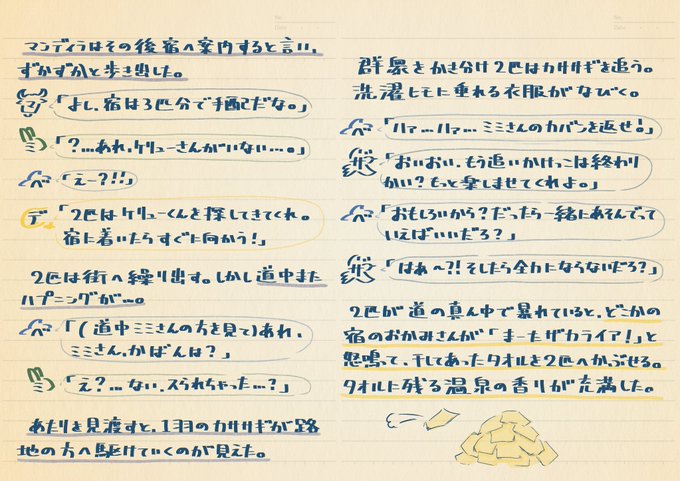 マンディラはその後宿へ案内すると言い、
ずかずかと歩き出した。
「よし、宿は3匹分で手配だな。」
ミ
「?…あれ、ケリューさんがいない…。」
「えー?!!」
デ
「2匹はケリューくんを探してきてくれ。
宿に着いたらすぐに向かう!」
2匹は街へ繰り出す。しかし道中また
ハプニングが…。
「(道中ミミさんの方を見て)あれ、
ミミさん、かばんは?」
ミ
「え?…ない、スられちゃった…?」
あたりを見渡すと、1羽のカササギが路
地の方へ駆けていくのが見えた。
群衆をかき分け2匹はカササギを追う。
洗濯ヒモに垂れる衣服がなびく。
「ハァ…ハァ…ミミさんのカバンを返せ!」
「おいおい、もう追いかけっこは終わり
かい?もっと楽しませてくれよ。」
「おもしろいから?だったら一緒にあそんでって
いえばいいだろ?」
「はあ〜?!そしたら全力にならないだろ?」
2匹が道の真ん中で暴れていると、どこかの
宿のおかみさんが「まーたザカライア!」と
怒鳴って、干してあったタオルを2匹へかぶせる。
タオルに残る温泉の香りが充満した。